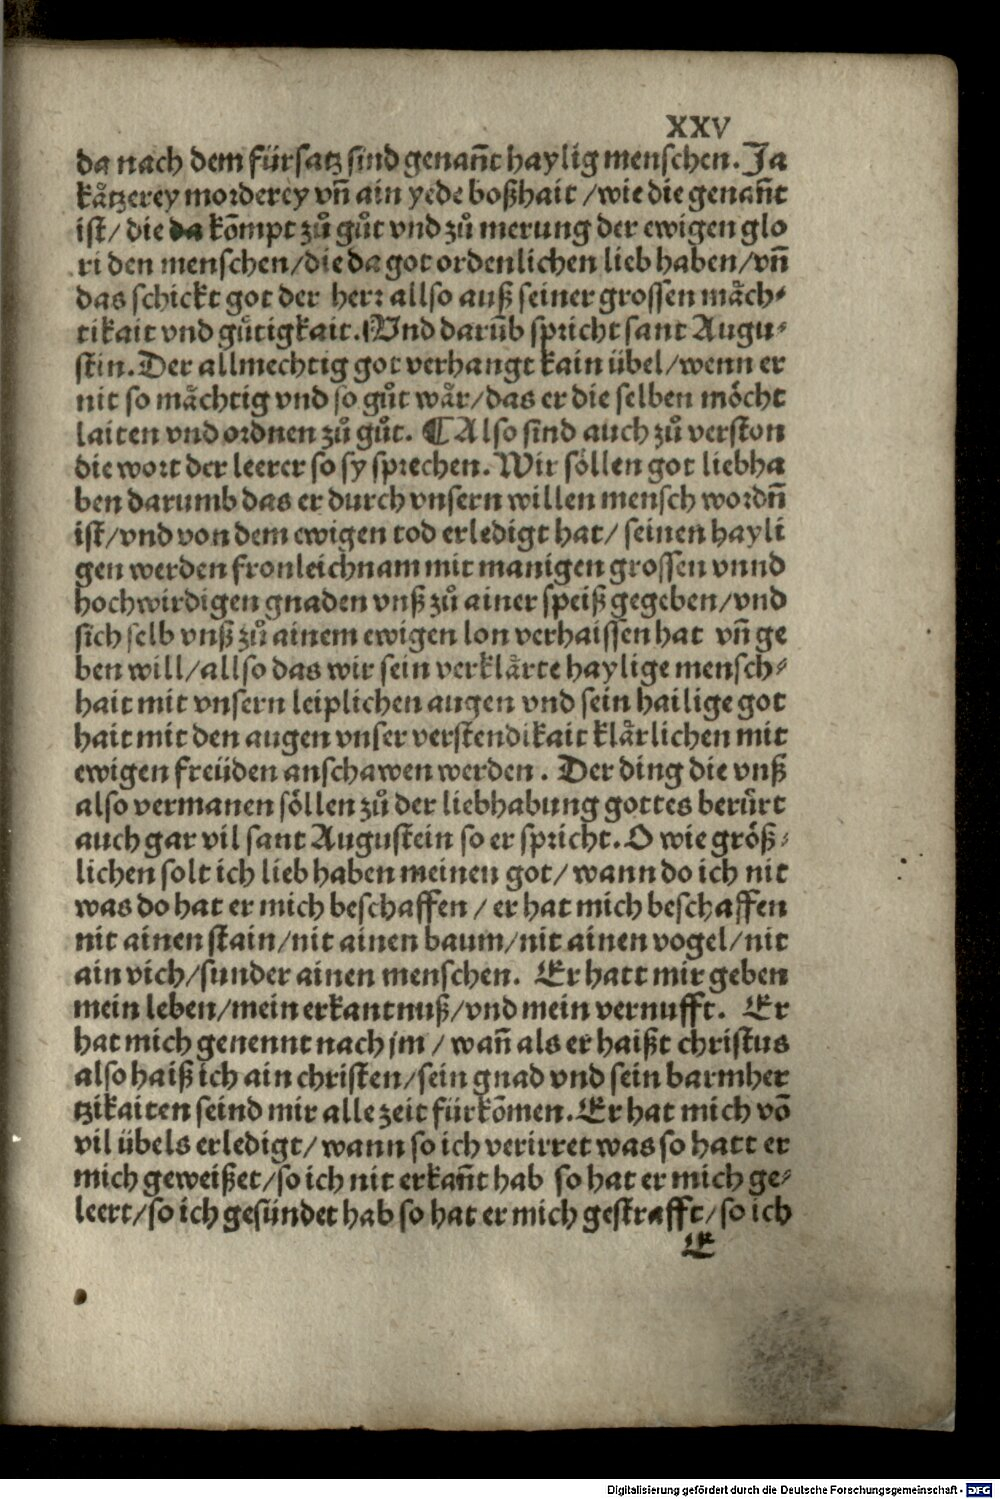 XXV
da nach dem fürsatz sind genañt haylig menschen. Ja
kåtzerey morderey vñ ain yede boßhait / wie die genañt
ist / die da kõmpt zů gůt vnd zů merung der ewigen glo
ri den menschen / die da got ordenlichen lieb haben / vñ
das schickt got der herr allso auß seiner grossen måch⸗
tikait vnd gůtigkait. Vnd darũb spricht sant Augu⸗
stin. Der allmechtig got verhangt kain übel / wenn er
nit so måchtig vnd so gůt wår / das er die selben möcht
laiten vnd ordnen zů gůt. ¶ Also sind auch zů verston
die wort der leerer so sy sprechen. Wir söllen got liebha
ben darumb das er durch vnsern willen mensch wordñ
ist / vnd von dem ewigen tod erledigt hat / seinen hayli
gen werden fronleichnam mit manigen grossen vnnd
hochwirdigen gnaden vnß zů ainer speiß gegeben / vnd
sich selb vnß zů ainem ewigen lon verhaissen hat vñ ge
ben will / allso das wir sein verklårte haylige mensch⸗
hait mit vnsern leiplichen augen vnd sein hailige got
hait mit den augen vnser verstendikait klårlichen mit
ewigen freüden anschawen werden. Der ding die vnß
also vermanen söllen zů der liebhabung gottes berůrt
auch gar vil sant Augustein so er spricht. O wie größ⸗
lichen solt ich lieb haben meinen got / wann do ich nit
was do hat er mich beschaffen / er hat mich beschaffen
nit ainen stain / nit ainen baum / nit ainen vogel / nit
ain vich / sunder ainen menschen. Er hatt mir geben
mein leben / mein erkantnuß / vnd mein vernufft. Er
hat mich genennt nach jm / wañ als er haißt christus
also haiß ich ain christen / sein gnad vnd sein barmher
tzikaiten seind mir alle zeit fürkõmen. Er hat mich võ
vil übels erledigt / wann so ich verirret was so hatt er
mich geweißet / so ich nit erkañt hab so hat er mich ge⸗
leert / so ich gesündet hab so hat er mich gestrafft / so ich
E
Digitalisierung gefördert durch die Deutsche Forschungsgemeinschaft - DFG